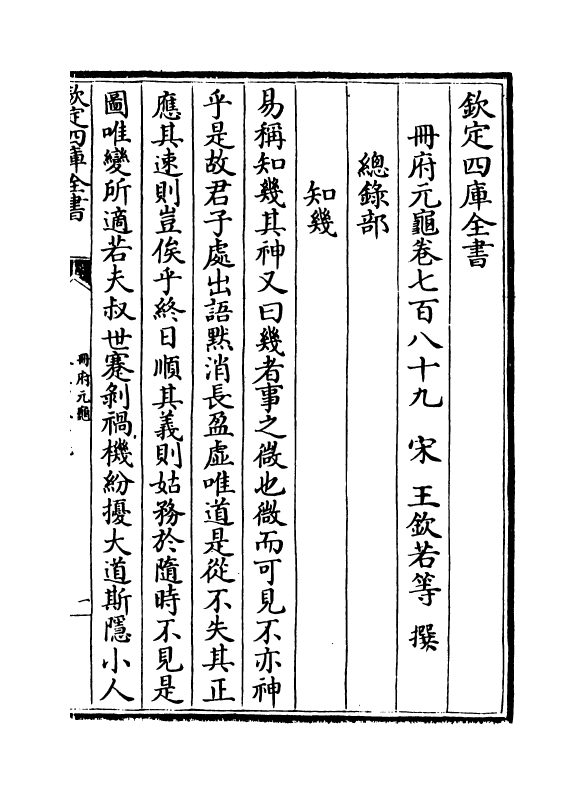 欽定四庫全書
冊府元龜卷七百八十九　宋　王欽若等　撰
總錄部
知幾
易稱知幾其神又曰幾者事之微也微而可見不亦神
乎是故君子處出語黙消長盈虛唯道是從不失其正
應其速則豈俟乎終日順其義則姑務於隨時不見是
圖唯變所適若夫叔世蹇剝禍機紛擾大道斯隱小人
欽定四庫全書
冊府元龜
一